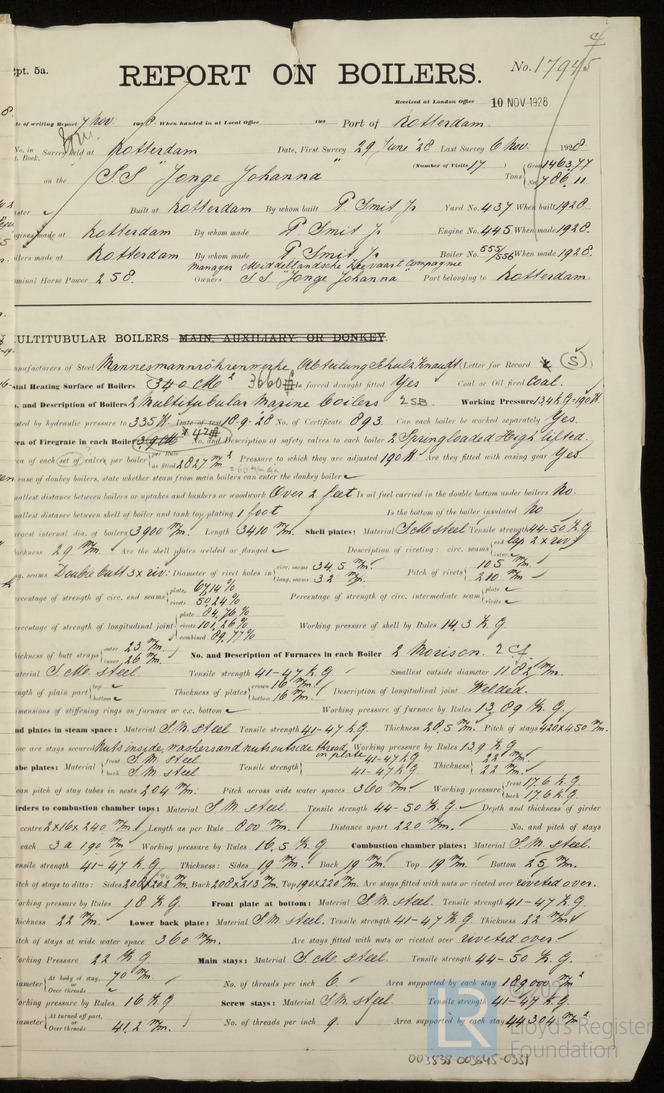 Rpt. 5a.
REPORT ON BOILERS.
No. 17945
Received at London Office 10 NOV 1928
Date of writing Report 7 Nov. 1928 When handed in at Local Office 192 Port of Rotterdam
No. in Survey held at Rotterdam Date, First Survey 29 June '28 Last Survey 6 Nov. 1928
Book. (Number of Visits 17)
on the S.S. "Jonge Johanna" Tons Gross 1463.77 Net 786.11
Built at Rotterdam By whom built P. Smit Jr. Yard No. 437 When built 1928
Engines made at Rotterdam By whom made P. Smit Jr. Engine No. 445 When made 1928.
Boilers made at Rotterdam By whom made P. Smit Jr. Boiler No. 555/556 When made 1928.
Nominal Horse Power 258. Owners S.S. "Jonge Johanna" Port belonging to Rotterdam.
MULTITUBULAR BOILERS MAIN, AUXILIARY, OR DONKEY.
Manufacturers of Steel Mannesmannröhrenwerke Abteilung Schulz Knaudt (Letter for Record S)
Total Heating Surface of Boilers 340 M² 3660 Is forced draught fitted Yes Coal or Oil fired Coal.
No. and Description of Boilers 2 Multitubular Marine boilers 2SB Working Pressure 13,4 KG - 190 lb
tested by hydraulic pressure to 335 Date of test 18-9-'28 No. of Certificate 893. Can each boiler be worked separately Yes.
Area of Firegrate in each Boiler No. and Description of safety valves to each boiler 2 Spring loaded High lifted.
Area of each set of valves per boiler as fitted 2827 m/m² Pressure to which they are adjusted 190 Are they fitted with easing gear Yes
In case of donkey boilers, state whether steam from main boilers can enter the donkey boiler
Smallest distance between boilers or uptakes and bunkers or woodwork Over 2 feet Is oil fuel carried in the double bottom under boilers No.
Smallest distance between shell of boiler and tank top plating 1 foot Is the bottom of the boiler insulated No
Largest internal dia. of boilers 3900 m/m. Length 3410 m/m. Shell plates: Material S.M. steel Tensile strength 44-50 K.G.
Thickness 29 m/m. Are the shell plates welded or flanged Description of riveting: circ. seams end lap 2 x riv. inter.
long. seams Double butt 3 x riv. Diameter of rivet holes in circ. seams 34.5 m/m. long. seams 32 m/m. Pitch of rivets 105 m/m. 210 m.
Percentage of strength of circ. end seams plate 67.14% rivets 50.24% Percentage of strength of circ. intermediate seam plate rivets
Percentage of strength of longitudinal joint plate 84.76% rivets 101.26% combined 89.77% Working pressure of shell by Rules 14.3 K.G
Thickness of butt straps outer 23 m/m. inner 26 m/m. No. and Description of Furnaces in each Boiler 2 Morison. 2 cf.
Material S.M. steel Tensile strength 41-47 K.G. Smallest outside diameter 1182 m/m
Length of plain part top bottom Thickness of plates crown 16 m/m. bottom 16 m/m. Description of longitudinal joint Welded.
Dimensions of stiffening rings on furnace or c.c. bottom Working pressure of furnace by Rules 13,89 K.G.
End plates in steam space: Material S.M. steel Tensile strength 41-47 K.G. Thickness 28.5 m/m. Pitch of stays 420 x 450 m/m.
How are stays secured Nuts inside, washers and nuts outside thread in plate Working pressure by Rules 13.9 K.G.
Tube plates: Material front S.M. steel back S.M. steel Tensile strength 41-47 K.G. 41-47 K.G. Thickness 22 m/m. 22 m/m.
Mean pitch of stay tubes in nests 204 m/m. Pitch across wide water spaces 360 m/m. Working pressure front 17.6 K.G. back 17.6 K.G.
Girders to combustion chamber tops: Material S.M. steel. Tensile strength 44-50 K.G. Depth and thickness of girder
centre 2x16x240 m/m. Length as per Rule 800 m/m. Distance apart 220 m/m. No. and pitch of stays
each 3 a 190 m/m Working pressure by Rules 16,5 K.G. Combustion chamber plates: Material S.M. steel.
Tensile strength 41-47 K.G. Thickness: Sides 19 m/m. Back 19 m/m. Top 19 m/m. Bottom 25 m/m.
Pitch of stays to ditto: Sides Back 208x213 m/m. Top 190x220 m/m. Are stays fitted with nuts or riveted over riveted over.
Working pressure by Rules 18 K.G Front plate at bottom: Material S.M. steel. Tensile strength 41-47 K.G.
Thickness 22 m/m. Lower back plate: Material S.M. steel. Tensile strength 41-47 K.G. Thickness 22 m/m
Pitch of stays at wide water space 360 m/m. Are stays fitted with nuts or riveted over riveted over
Working Pressure 22 K.G Main stays: Material S.M. steel Tensile strength 44-50 K.G.
Diameter At body of stay, or Over threads 70 m/m No. of threads per inch 6 Area supported by each stay 189000 m/m²
Working pressure by Rules 16 K.G Screw stays: Material S.M. steel Tensile strength 41-47 K.G.
Diameter At turned off part, or Over threads 41.2 m/m. No. of threads per inch 9. Area supported by each stay 44304 m/m²
LR
Lloyd's Register
Foundation
003838-003845-0331